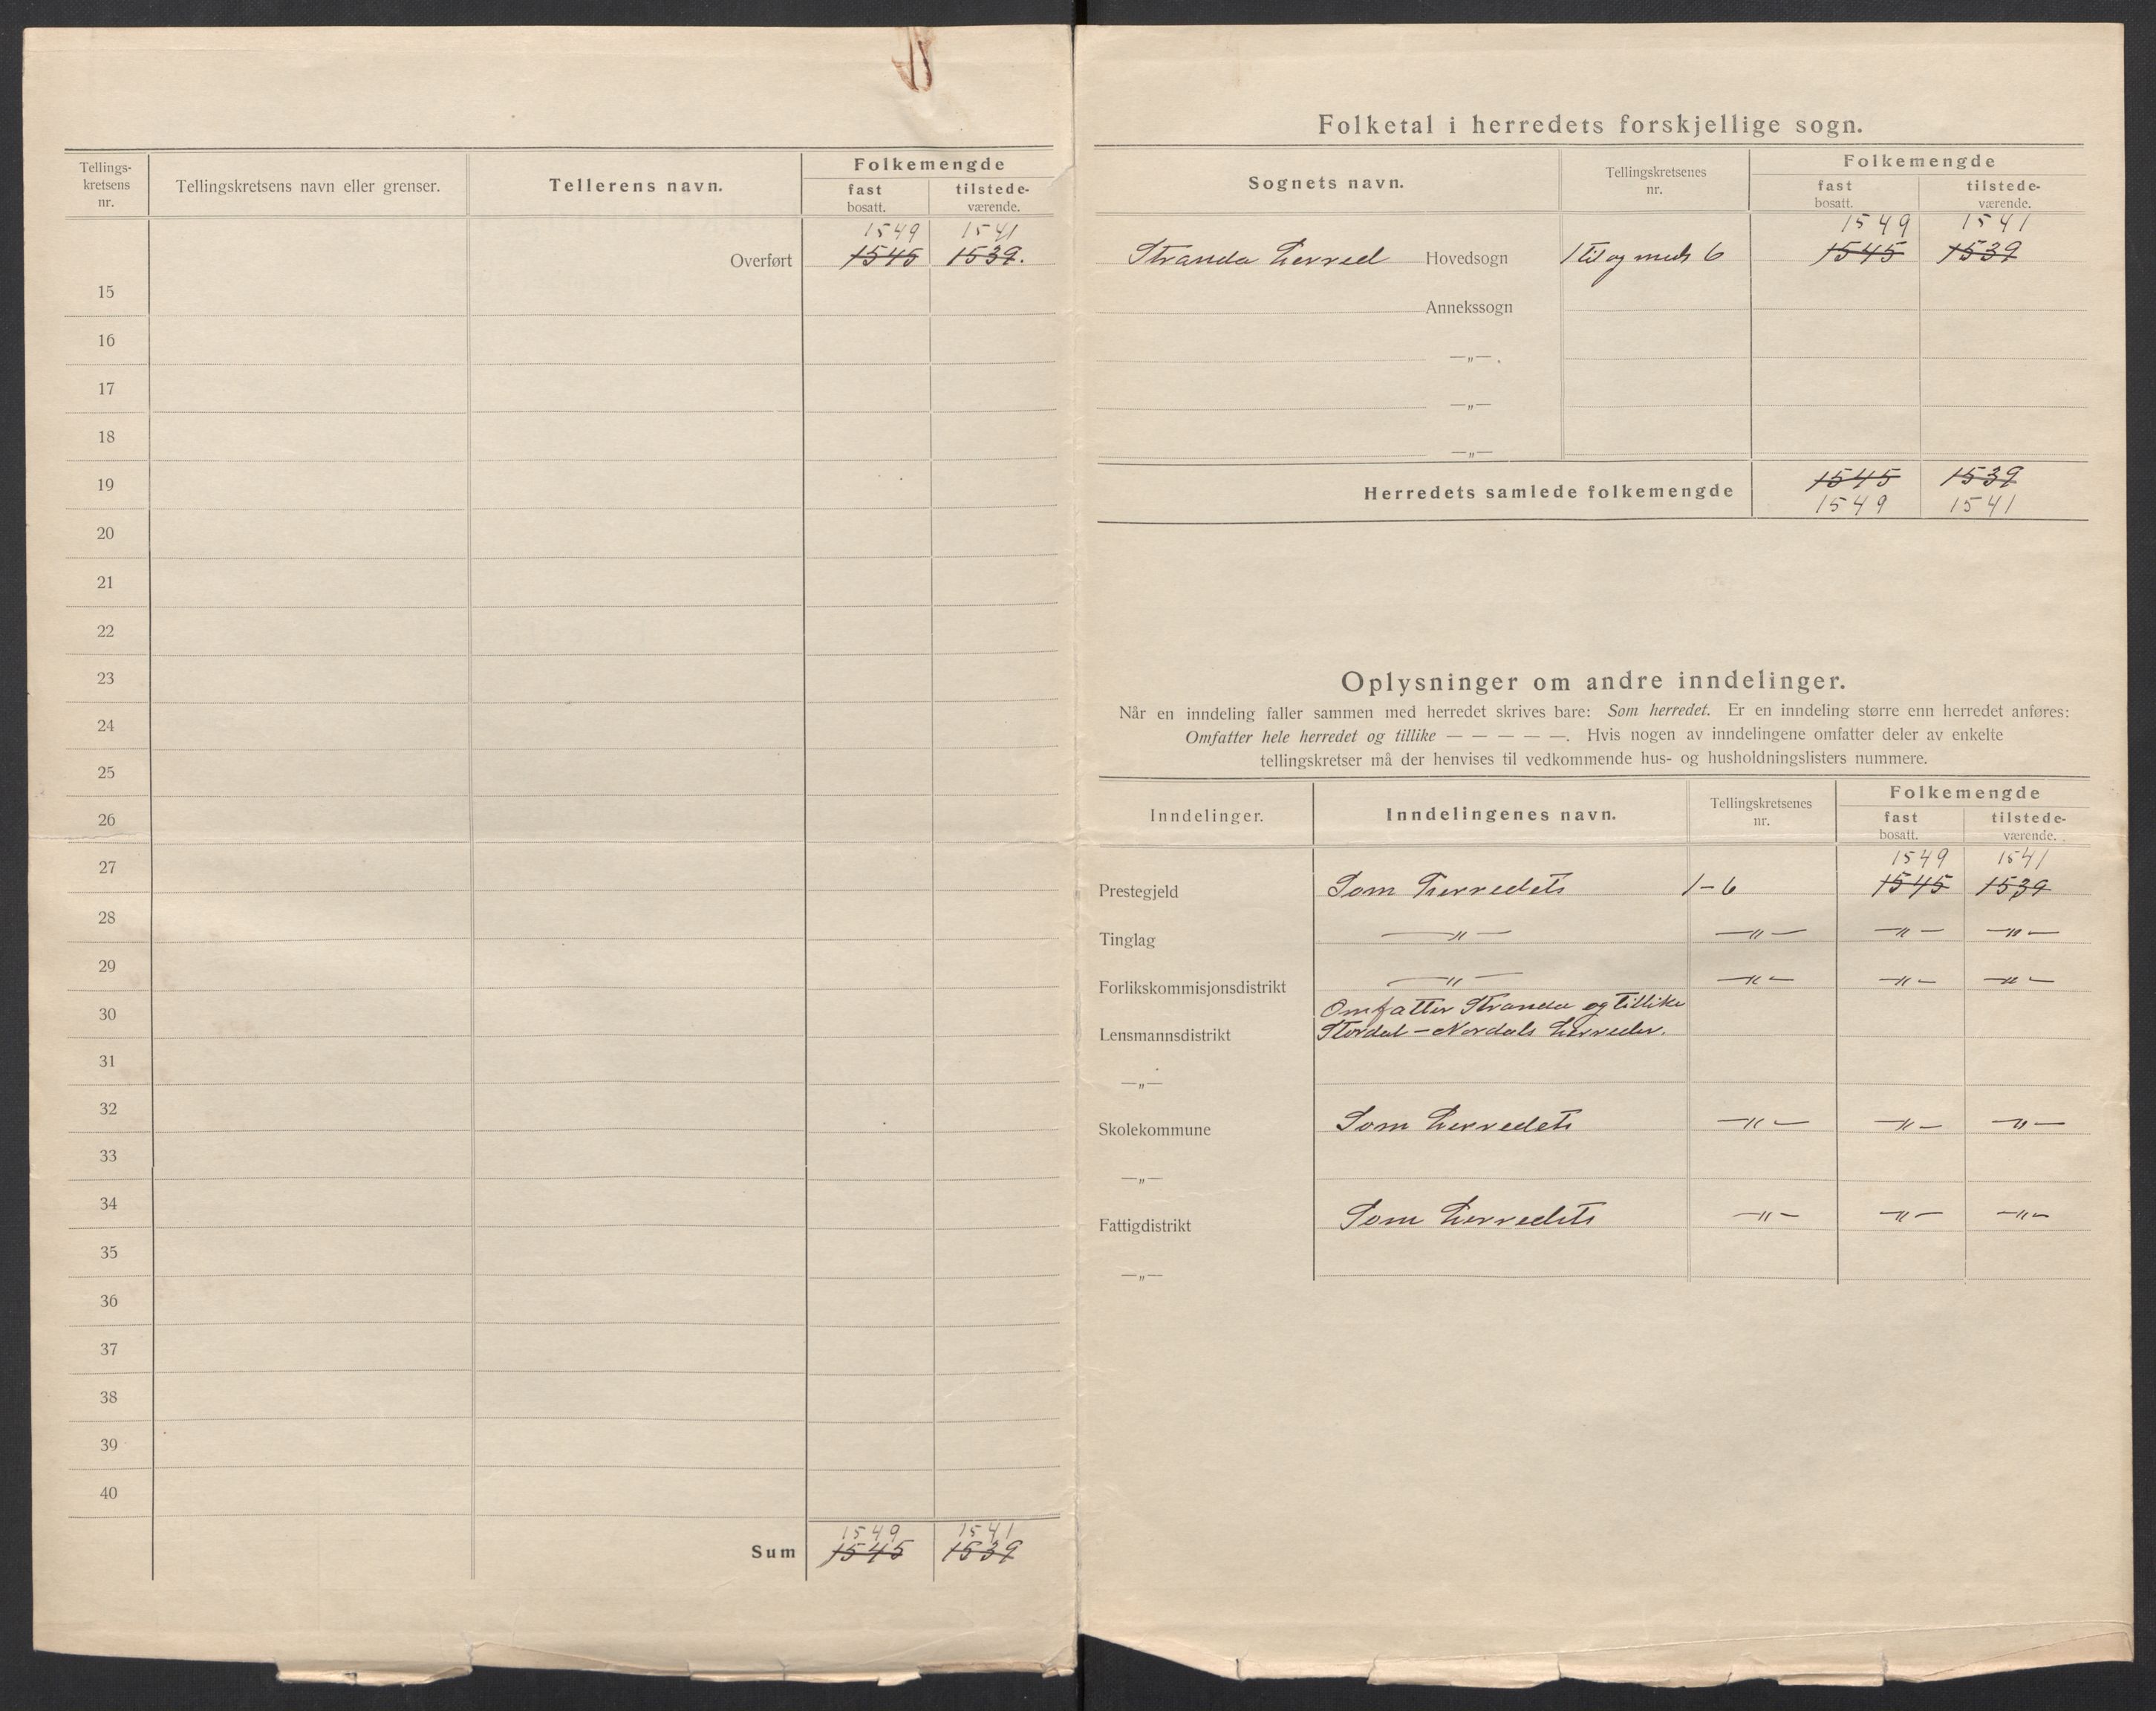 Tellings-
kretsens
nr.
Tellingskretsens navn eller grenser.
Tellerens navn.
Folkemengde
fast
bosatt.
tilstede-
værende.
1549 1541
Overført 1545 1539.
15
16
17
18
19
20
21
22
23
24
25
26
27
28
29
30
31
32
33
34
35
36
37
38
39
40
1549 1541
Sum 1545 1539
Folketal i herredets forskjellige sogn.
Sognets navn.
Tellingskretsenes
nr.
Folkemengde
fast
bosatt.
tilstede-
værende.
1549 1541
Stranda herred Hovedsogn 1 til og med 6 1545 1539
Annekssogn
—„— .
—„—
—„—
Herredets samlede folkemengde 1545 1539
1549 1541
Oplysninger om andre inndelinger.
Når en inndeling faller sammen med herredet skrives bare: Som herredet. Er en inndeling større enn herredet anføres:
Omfatter hele herredet og tillike — — — — —. Hvis nogen av inndelingene omfatter deler av enkelte
tellingskretser må der henvises til vedkommende hus- og husholdningslisters nummere.
Inndelinger.
Inndelingenes navn.
Tellingskretsenes
nr.
Folkemengde
fast
bosatt.
tilstede-
værende.
1549 1541
Prestegjeld Som herredets 1-6 1545 1539
Tinglag —„— —„— —„— —„—
Forlikskommisjonsdistrikt —„— —„— —„— —„—
Omfatter Stranda og tillike
Lensmannsdistrikt Stordal - Nordals herreder.
—„—
Skolekommune Som herredets —„— —„— —„—
—„—
Fattigdistrikt Som herredets —„— —„— —„—
—„—